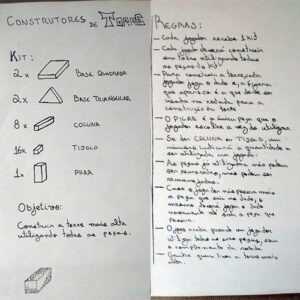 CONSTRUTORES DE TORRE
KIT:
2x BASE QUADRADA
2x BASE TRIANGULAR
8x COLUNA
16x TIJOLO
1x PILAR
Objetivo:
Construir a torre mais alta
utilizando todas as peças.
REGRAS:
— Cada jogador recebe 1 kit
— Cada jogador deverá construir
sua torre utilizando todas
as peças do kit
— Para construir a torre, cada
jogador joga o dado, a figura
que aparecer é a que deverá ser
usada na rodada para a
construção da torre
— O PILAR é a única peça que o
jogador escolhe a
— Se der COLUNA ou TIJOLO, um
número indicará a quantidade a
ser utilizada na jogada.
— As peças já utilizadas não podem
ser remanejadas, não podem ser
remanejadas.
— Caso o jogador não possua mais
a peça que saiu no dado, o
mesmo deverá jogar o dado
novamente até sair a peça que
possua.
— O jogo acaba quando um jogador
utiliza todas as suas peças, com
o complemento da rodada.
— Ganha quem tiver a torre mais
alta.